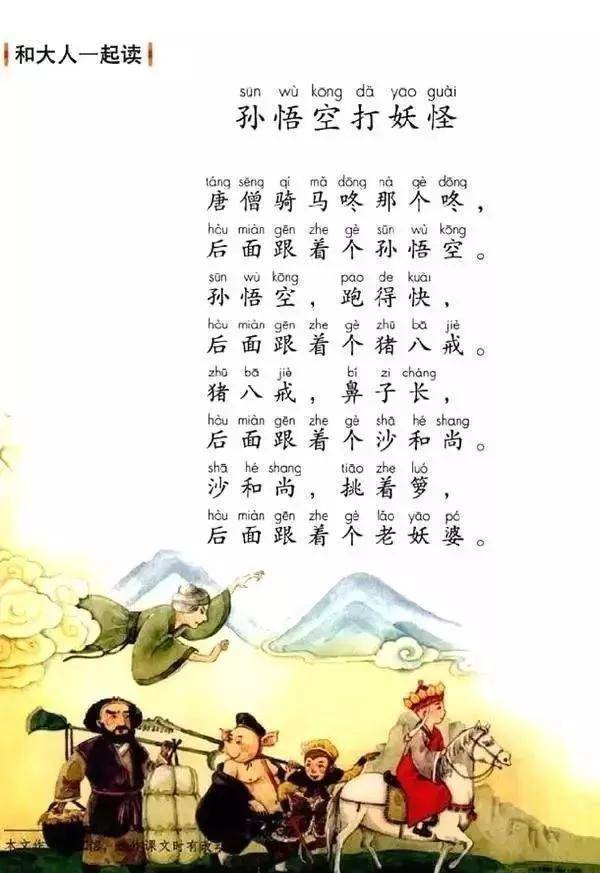 和大人一起读
sūn wù kōng dǎ yāo guài
孙悟空打妖怪
táng sēng qí mǎ dōng nà gè dōng
唐僧骑马咚那个咚，
hòu miàn gēn zhe gè sūn wù kōng
后面跟着个孙悟空。
sūn wù kōng pǎo de kuài
孙悟空，跑得快，
hòu miàn gēn zhe gè zhū bā jiè
后面跟着个猪八戒。
zhū bā jiè bí zi cháng
猪八戒，鼻子长，
hòu miàn gēn zhe gè shā hé shang
后面跟着个沙和尚。
shā hé shang tiāo zhe luó
沙和尚，挑着箩，
hòu miàn gēn zhe gè lǎo yāo pó
后面跟着个老妖婆。
本文作 课文时有改